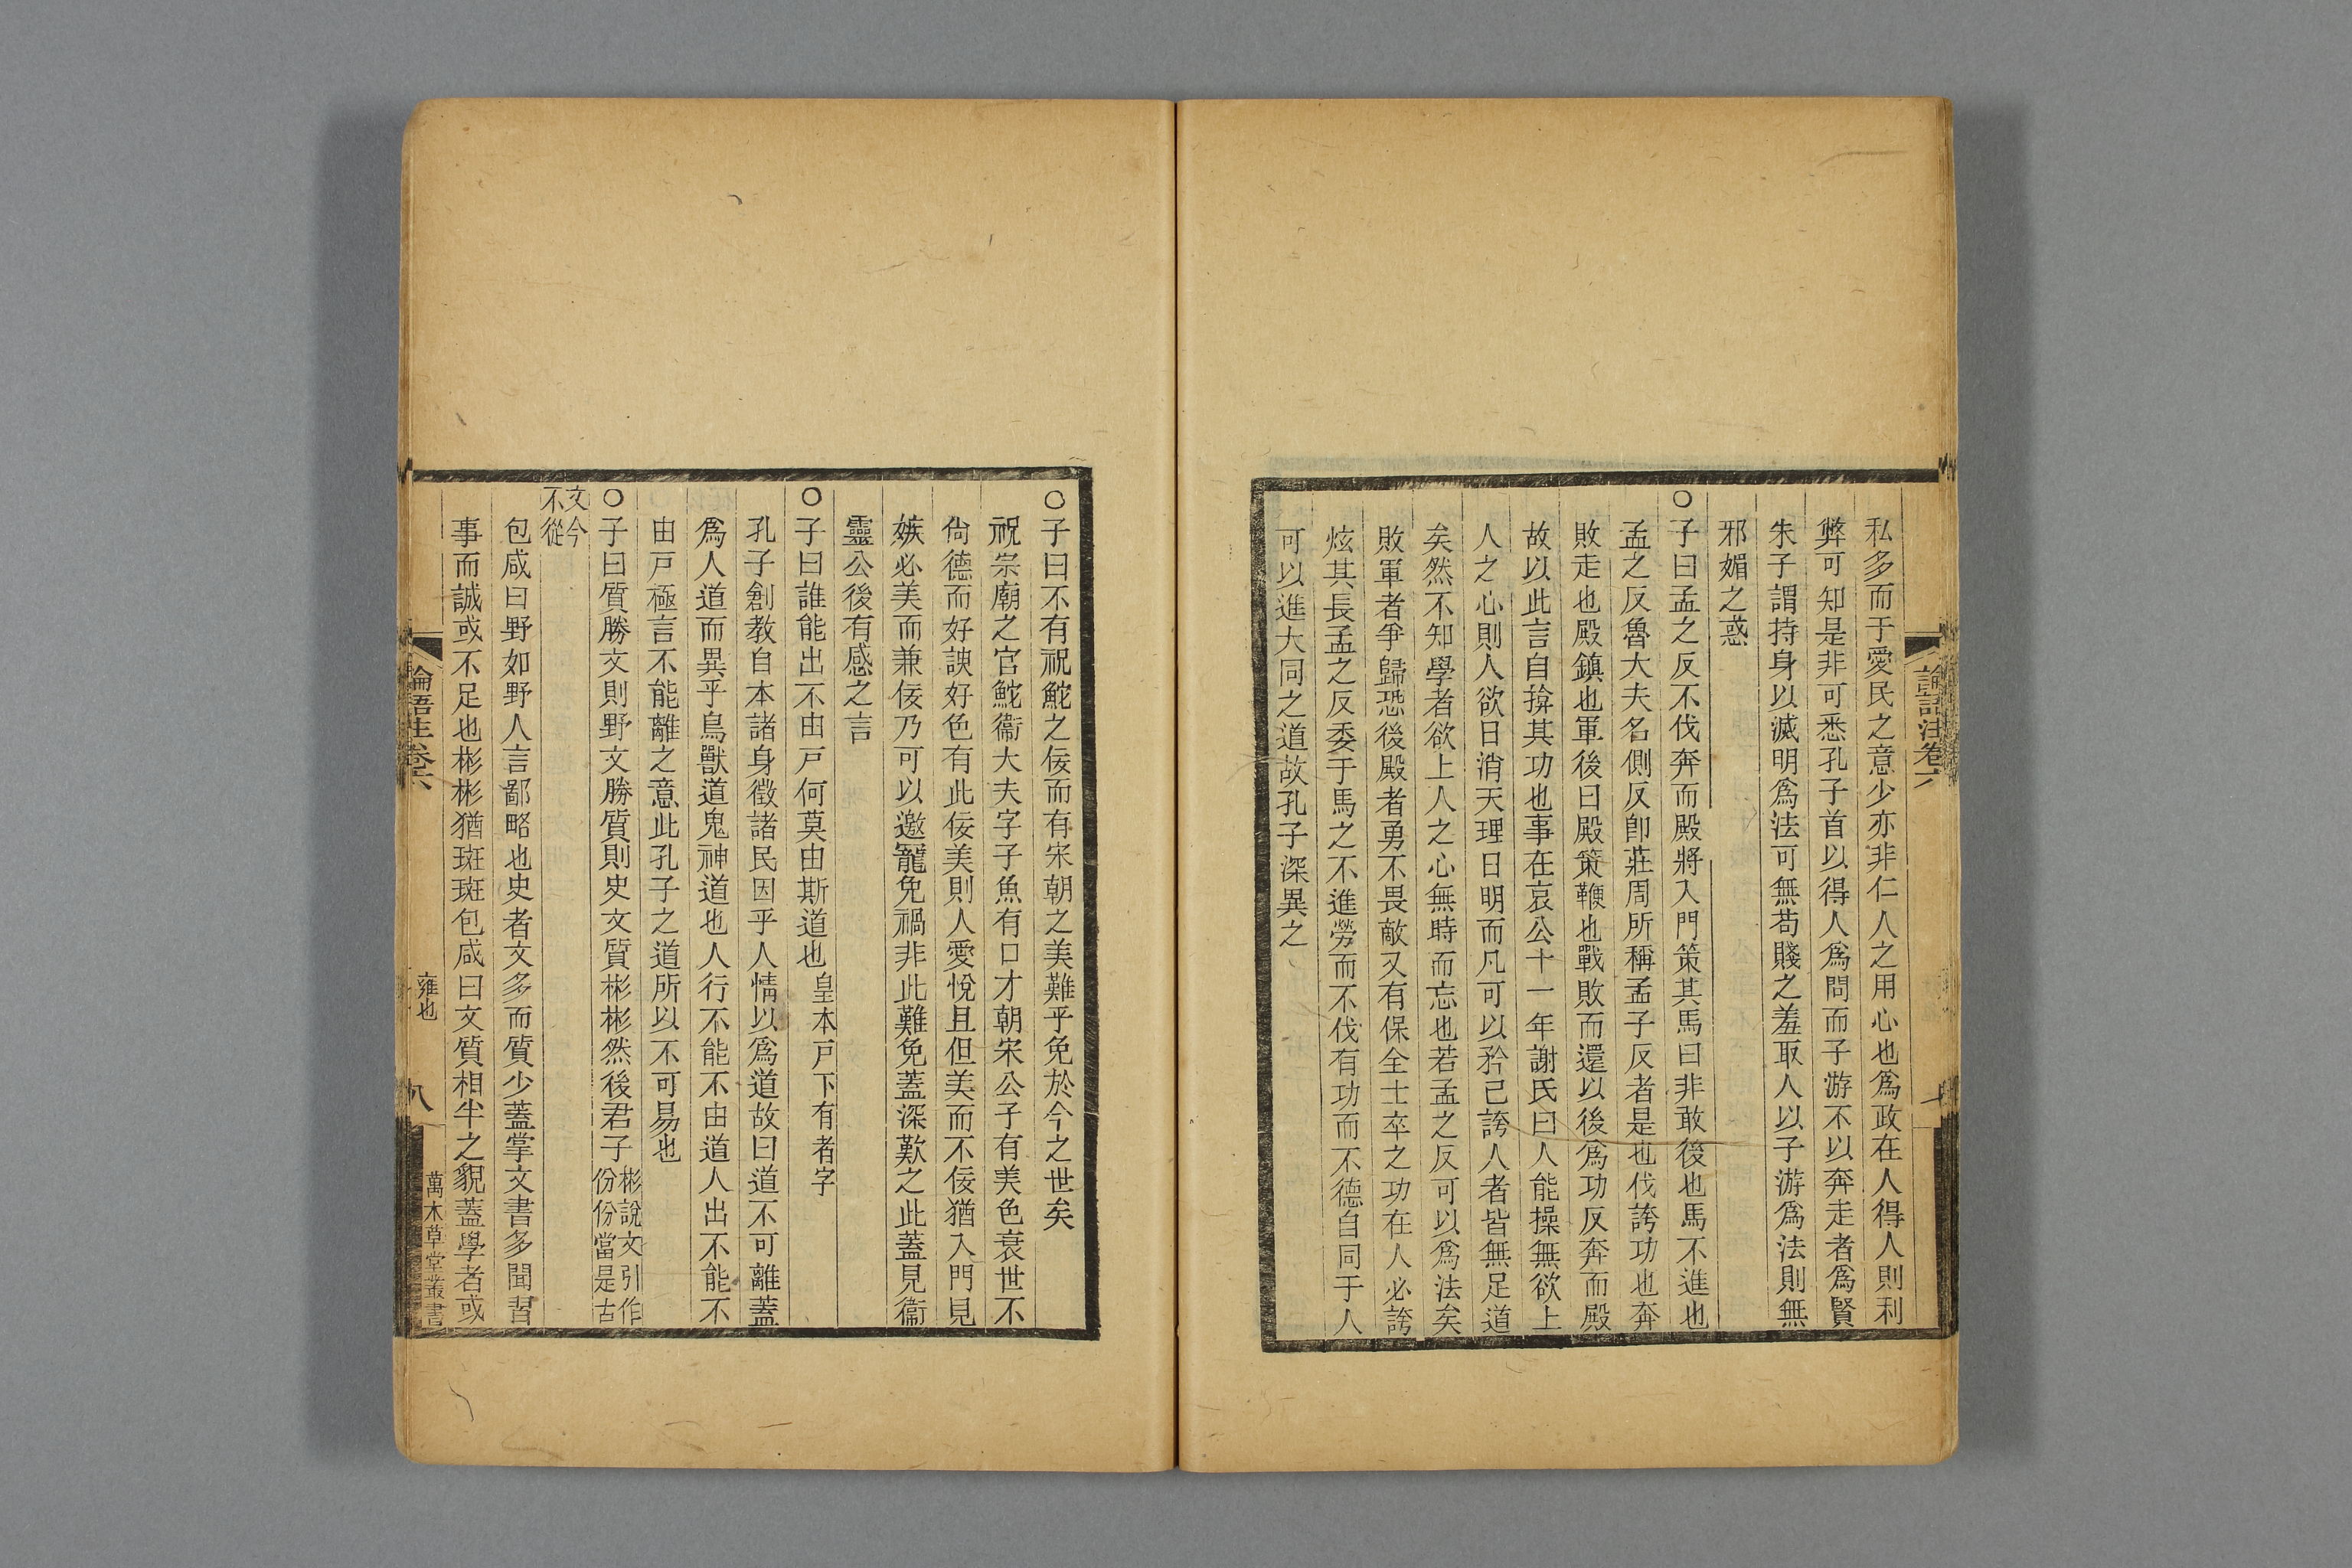 私多而于愛民之意少亦非仁人之用心也爲政在人得人則利
弊可知是非可悉孔子首以得人爲問而子游不以奔走者爲賢
朱子謂持身以滅明爲法可無苟賤之羞取人以子游爲法則無
邪媚之惑
○子曰孟之反不伐奔而殿將入門策其馬曰非敢後也馬不進也
孟之反魯大夫名側反卽莊周所稱孟子反者是也伐誇功也奔
敗走也殿鎮也軍後曰殿策鞭也戰敗而還以後爲功反奔而殿
故以此言自揜其功也事在哀公十一年謝氏曰人能操無欲上
人之心則人欲日消天理日明而凡可以矜己誇人者皆無足道
矣然不知學者欲上人之心無時而忘也若孟之反可以爲法矣
敗軍者爭歸恐後殿者勇不畏敵又有保全士卒之功在人必誇
炫其長孟之反委于馬之不進勞而不伐有功而不德自同于人
可以進大同之道故孔子深異之
論語注卷六
○子曰不有祝鮀之佞而有宋朝之美難乎免於今之世矣
祝宗廟之官鮀衞大夫字子魚有口才朝宋公子有美色衰世不
尙德而好諛好色有此佞美則人愛悅且但美而不佞猶入門見
嫉必美而兼佞乃可以邀寵免禍非此難免蓋深歎之此蓋見衞
靈公後有感之言
○子曰誰能出不由戶何莫由斯道也皇本戶下有者字
孔子創教自本諸身徵諸民因乎人情以爲道故曰道不可離蓋
爲人道而異乎鳥獸道鬼神道也人行不能不由道人出不能不
由戶極言不能離之意此孔子之道所以不可易也
○子曰質勝文則野文勝質則史文質彬彬然後君子彬說文引作份份當是古
文今不從
包咸曰野如野人言鄙略也史者文多而質少蓋掌文書多聞習
事而誠或不足也彬彬猶斑斑包咸曰文質相半之貌蓋學者或
論語注卷六
雍也
八
萬木草堂叢書